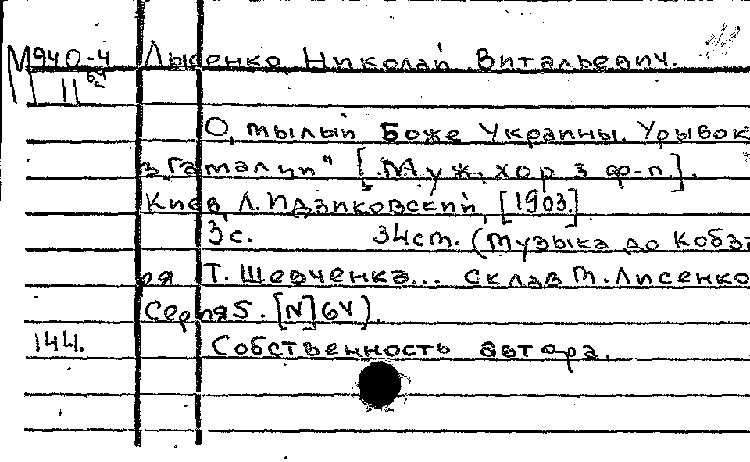 М940-4 Лысенко, Николай Витальевич.
II
О, тылый Боже Украины. Урывок
з "Гамалии" [Муж. хор з ф-п.].
Киев, Л. Идзиковский, [1903.]
3 с. 34 cm. (Музыка до Кобза-
ря Т. Шевченка... склав М. Лисенко
Серпя 5. [N] 64).
144. Собственность автора.